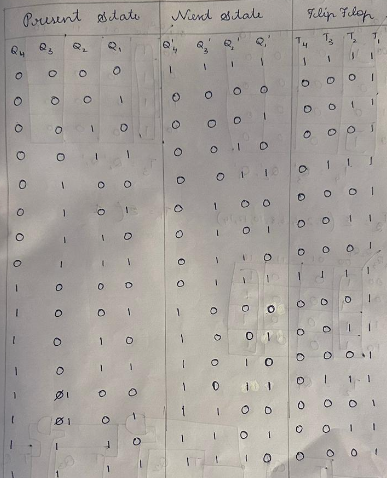 Present State Next State Flip Flop
Q4 Q3 Q2 Q1 Q4' Q3' Q2' Q1' T4 T3 T2 T1
0 0 0 0 1 1 1 1 1 1 1 1
0 0 0 1 0 0 0 0 0 0 0 1
0 0 1 0 0 0 0 1 0 0 1 1
0 0 1 1 0 0 1 0 0 0 0 1
0 1 0 0 0 0 1 1 0 1 1 1
0 1 0 1 0 1 0 0 0 0 0 1
0 1 1 0 0 1 0 1 0 0 1 1
0 1 1 1 0 1 1 0 0 0 0 1
1 0 0 0 0 1 1 1 1 1 1 1
1 0 0 1 1 0 0 0 0 0 0 1
1 0 1 0 1 0 0 1 0 0 1 1
1 0 1 1 1 0 1 0 0 0 0 1
1 1 0 0 1 0 1 1 0 1 1 1
1 1 0 1 1 1 0 0 0 0 0 1
1 1 1 0 1 1 0 1 0 0 1 1
1 1 1 1 1 1 1 0 0 0 0 1